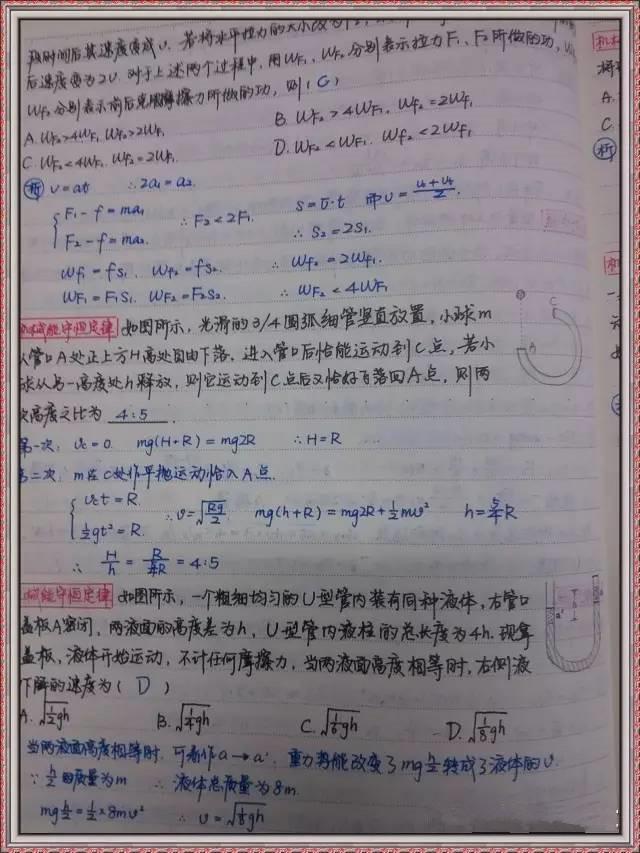 段时间后其速度变成υ，若将水平拉力的大小改为F₂，
后速度变为2υ. 对于上述两个过程中，用WF₁、WF₂分别表示拉力F₁、F₂所做的功，
Wf₂分别表示前后克服摩擦力所做的功，则（C）
A. WF₂>4WF₁, Wf₂>2Wf₁
B. WF₂>4WF₁, Wf₂=2Wf₁
C. WF₂<4WF₁, Wf₂=2Wf₁
D. WF₂<WF₁, Wf₂<2Wf₁
析 υ=at ∴2a₁=a₂.
F₁-f=ma₁
F₂-f=ma₂.
∴F₂<2F₁.
∴S₂=2S₁.
Wf₁=fS₁. Wf₂=fS₂. ∴ Wf₂=2Wf₁.
WF₁=F₁S₁. WF₂=F₂S₂. ∴ WF₂<4WF₁
机械能守恒定律 如图所示，光滑的3/4圆弧细管竖直放置，小球m
从管口A处正上方H高处自由下落，进入管口后恰能运动到C点，若小
球从另一高度处h释放，则它运动到C点后又恰好飞落回A点，则两
次高度之比为 4:5
C
A
第一次：υc=0. mg(H+R)=mg2R ∴H=R
第二次：m在C处作平抛运动恰入A点.
υct=R.
½gt²=R.
∴υ=√(Rg/2) mg(h+R)=mg2R+½mυ² h=5/4R
∴ H/h = R/(5/4R) = 4:5
机械能守恒定律 如图所示，一个粗细均匀的U型管内装有同种液体，右管口
盖板A密闭，两液面的高度差为h，U型管内液柱的总长度为4h. 现拿
盖板，液体开始运动，不计任何摩擦力，当两液面高度相等时，右侧液
下降的速度为（D）
A. √(½gh) B. √(¼gh) C. √(1/6gh) D. √(1/8gh)
当两液面高度相等时，可看作a→a'，重力势能改变了mg h/2转成了液体的υ.
∵ h/2的质量为m ∴ 液体总质量为8m.
mg h/2=½×8mυ² ∴ υ=√(1/8gh)